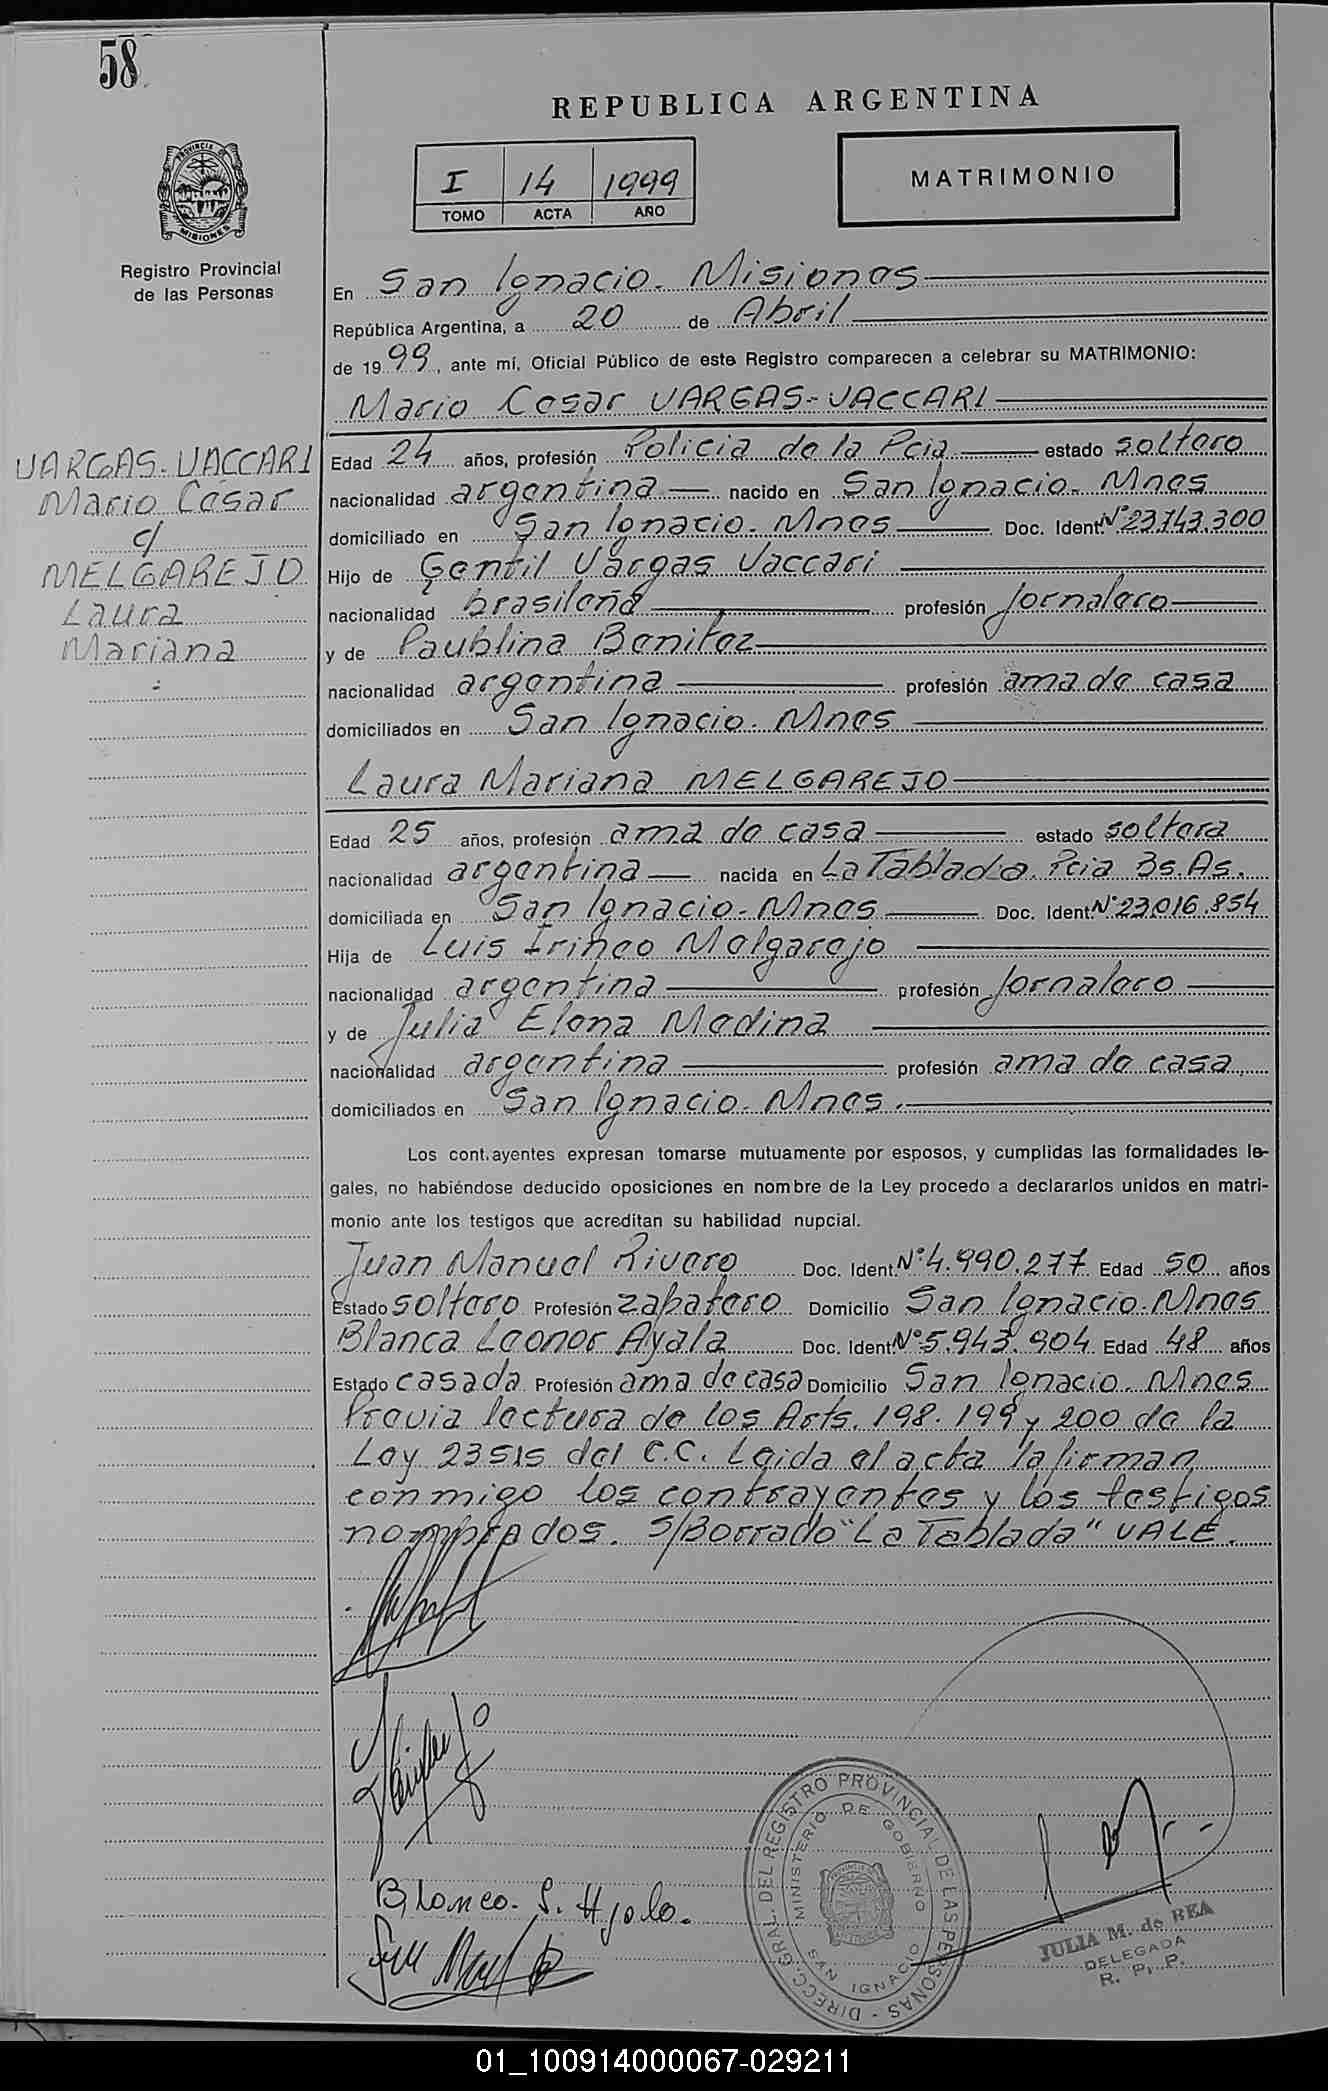 58
REPUBLICA ARGENTINA
I 14 1999
TOMO ACTA AÑO
MATRIMONIO
PROVINCIA DE MISIONES
Registro Provincial
de las Personas
En San Ignacio. Misiones
República Argentina, a 20 de Abril
de 1999, ante mí, Oficial Público de este Registro comparecen a celebrar su MATRIMONIO:
Mario Cesar VARGAS-VACCARI
VARGAS-VACCARI
Mario Cesar
c/
MELGAREJO
Laura
Mariana
Edad 24 años, profesión Policia de la Pcia estado soltero
nacionalidad argentina nacido en San Ignacio. Mnes
domiciliado en San Ignacio. Mnes Doc. Ident. Nº 23.743.300
Hijo de Gentil Vargas Vaccari
nacionalidad brasileña profesión Jornalero
y de Paublina Benitez
nacionalidad argentina profesión ama de casa
domiciliados en San Ignacio. Mnes
Laura Mariana MELGAREJO
Edad 25 años, profesión ama de casa estado soltera
nacionalidad argentina nacida en La Tablada. Pcia Bs. As.
domiciliada en San Ignacio. Mnes Doc. Ident. Nº 23.016.854
Hija de Luis Irineo Melgarejo
nacionalidad argentina profesión Jornalero
y de Julia Elena Medina
nacionalidad argentina profesión ama de casa
domiciliados en San Ignacio. Mnes.
Los cont.ayentes expresan tomarse mutuamente por esposos, y cumplidas las formalidades le-
gales, no habiéndose deducido oposiciones en nombre de la Ley procedo a declararlos unidos en matri-
monio ante los testigos que acreditan su habilidad nupcial.
Juan Manuel Rivero Doc. Ident. Nº 4.990.277 Edad 50 años
Estado soltero Profesión zapatero Domicilio San Ignacio. Mnes
Blanca Leonor Ayala Doc. Ident. Nº 5.943.904 Edad 48 años
Estado casada Profesión ama de casa Domicilio San Ignacio. Mnes
Previa lectura de los Arts. 198. 199 y 200 de la
Ley 23515 del C.C. Leida el acta la firman
conmigo los contrayentes y los testigos
nombrados. S/Borrado "La Tablada" VALE.
DIRECC. GRAL. DEL REGISTRO PROVINCIAL DE LAS PERSONAS
MINISTERIO DE GOBIERNO
SAN IGNACIO
JULIA M. de REA
DELEGADA
R. P. P.
01_100914000067-029211